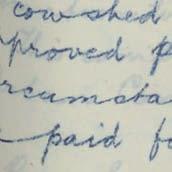 cowshed
pproved p
rcumsta
paid fo